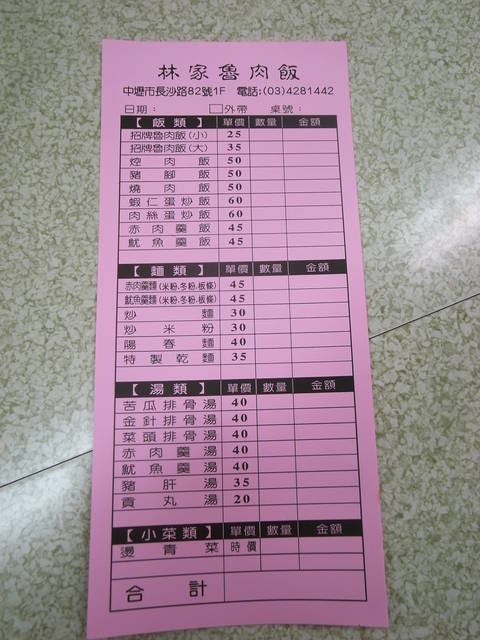 林家魯肉飯
中壢市長沙路82號1F 電話:(03)4281442
日期: □外帶 桌號:
【飯類】 單價 數量 金額
招牌魯肉飯(小) 25
招牌魯肉飯(大) 35
焢肉飯 50
豬腳飯 50
燒肉飯 50
蝦仁蛋炒飯 60
肉絲蛋炒飯 60
赤肉羹飯 45
魷魚羹飯 45
【麵類】 單價 數量 金額
赤肉羹麵(米粉.冬粉.板條) 45
魷魚羹麵(米粉.冬粉.板條) 45
炒麵 30
炒米粉 30
陽春麵 40
特製乾麵 35
【湯類】 單價 數量 金額
苦瓜排骨湯 40
金針排骨湯 40
菜頭排骨湯 40
赤肉羹湯 40
魷魚羹湯 40
豬肝湯 35
貢丸湯 20
【小菜類】 單價 數量 金額
燙青菜 時價
合計